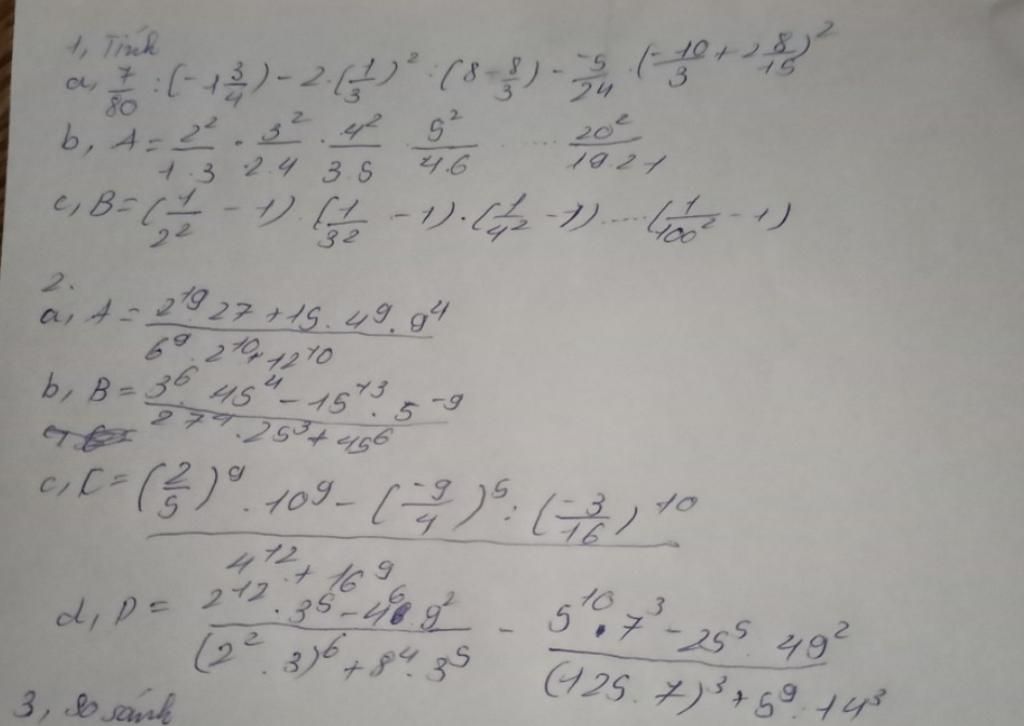 1, Tính
a, 7/80 : (-1 3/4) - 2 · (1/3)² : (8 - 8/3) - -5/24 · (-10/3 + 2 8/15)²
b, A = 2²/1·3 · 3²/2·4 · 4²/3·5 · 5²/4·6 ..... 20²/19·21
c, B = (1/2² - 1) · (1/3² - 1) · (1/4² - 1) ..... (1/100² - 1)
2.
a, A = 2¹⁹ · 27 + 15 · 4⁹ · 9⁴ / 6⁹ · 2¹⁰ + 12¹⁰
b, B = 3⁶ · 45⁴ - 15¹³ · 5⁻⁹ / 27⁴ · 25³ + 45⁶
c, C = (2/5)⁹ · 10⁹ - (-9/4)⁵ : (-3/16)¹⁰ / 4¹² + 16⁹
d, D = 2¹² · 3⁵ - 4⁶ · 9² / (2² · 3)⁶ + 8⁴ · 3⁵ - 5¹⁰ · 7³ - 25⁵ · 49² / (125 · 7)³ + 5⁹ · 14³
3, So sánh